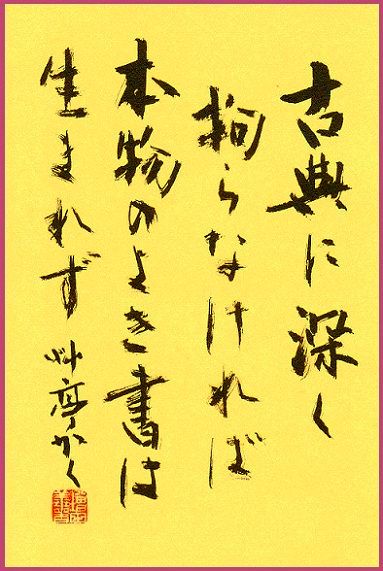 古典に深く
拘らなければ
本物のよき書は
生まれず 艸亭かく